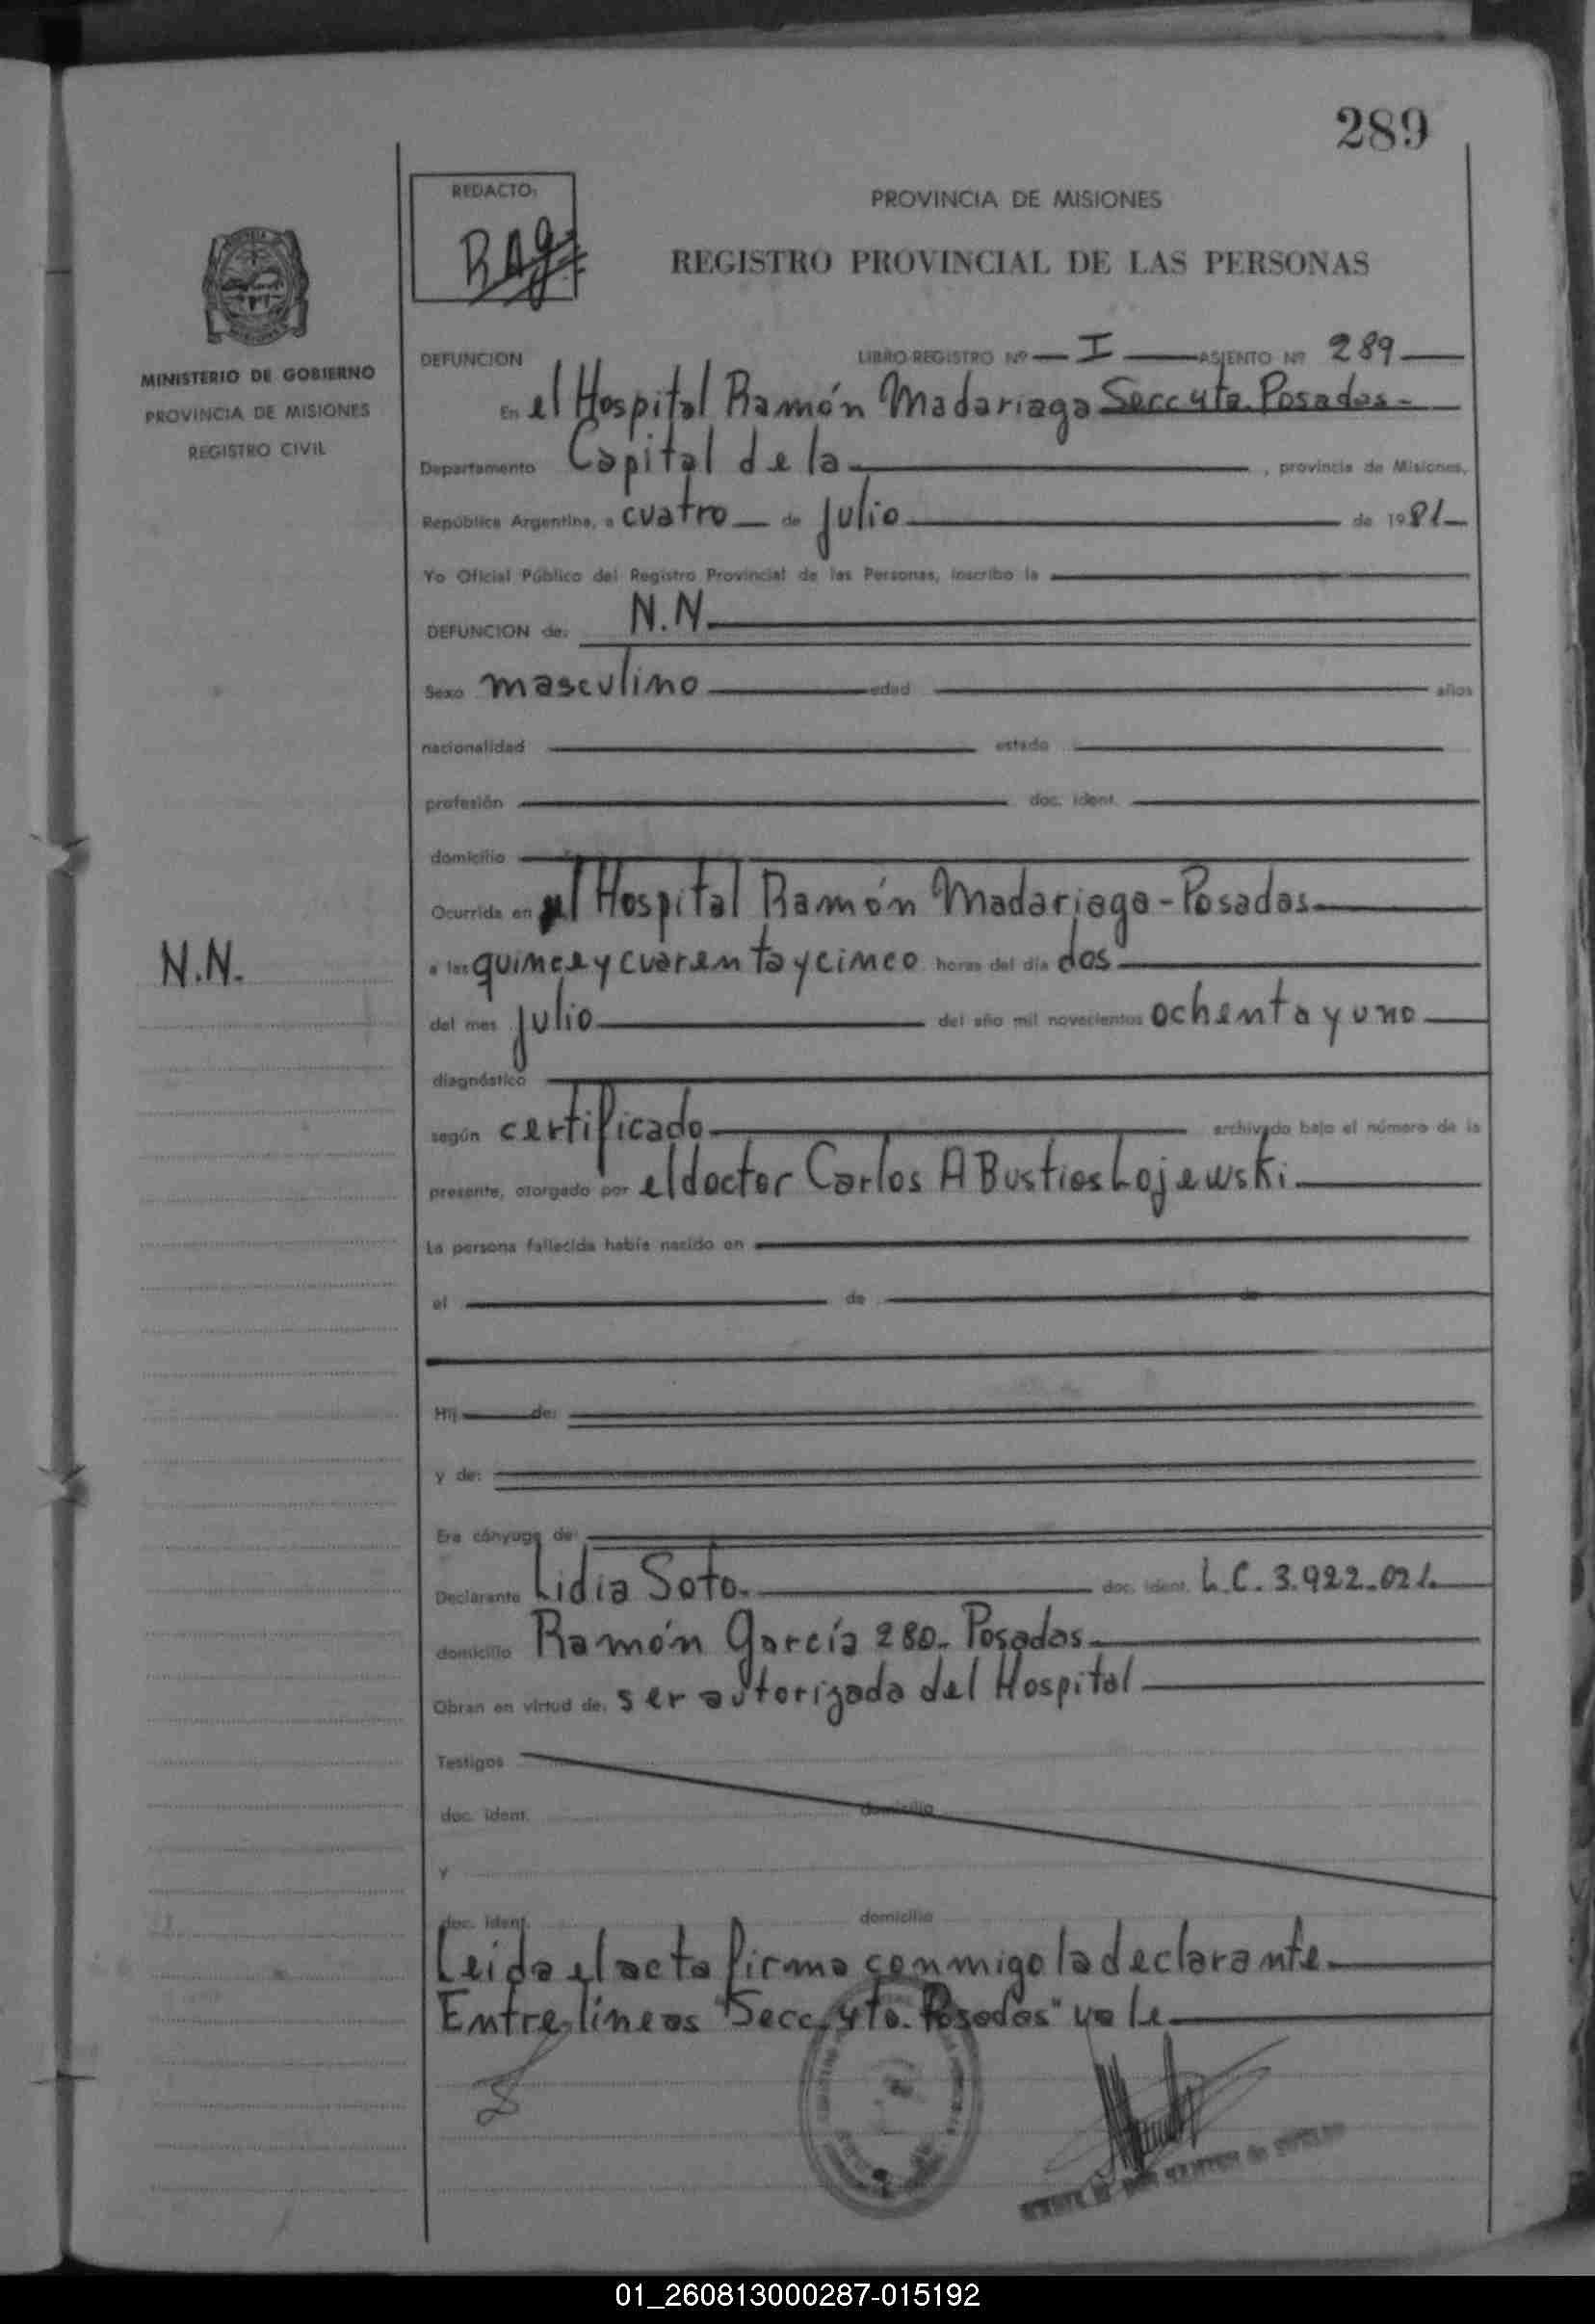 289
REDACTO:
PROVINCIA DE MISIONES
RAg
REGISTRO PROVINCIAL DE LAS PERSONAS
MINISTERIO DE GOBIERNO
PROVINCIA DE MISIONES
REGISTRO CIVIL
DEFUNCION LIBRO-REGISTRO Nº I ASIENTO Nº 289
En el Hospital Ramón Madariaga Secc 4ta. Posadas-
Departamento Capital de la , provincia de Misiones,
República Argentina, a cuatro de julio de 1981
Yo Oficial Público del Registro Provincial de las Personas, inscribo la
DEFUNCION de: N.N.
Sexo masculino edad años
nacionalidad estado
profesión doc. ident.
domicilio
Ocurrida en el Hospital Ramón Madariaga - Posadas
N.N.
a las quince y cuarenta y cinco horas del día dos
del mes julio del año mil novecientos ochenta y uno
diagnóstico
según certificado archivado bajo el número de la
presente, otorgado por el doctor Carlos A Bustios Lojewski.
La persona fallecida había nacido en
el de de
Hij de:
y de:
Era cónyuge de:
Declarante Lidia Soto. doc. ident. L.C. 3.922.021.
domicilio Ramón García 280. Posadas
Obran en virtud de: ser autorizada del Hospital
Testigos
doc. ident. domicilio
y
doc. ident. domicilio
Leida el acta firma conmigo la declarante.
Entrelíneas "Secc. 4ta. Posadas" vale
01_260813000287-015192